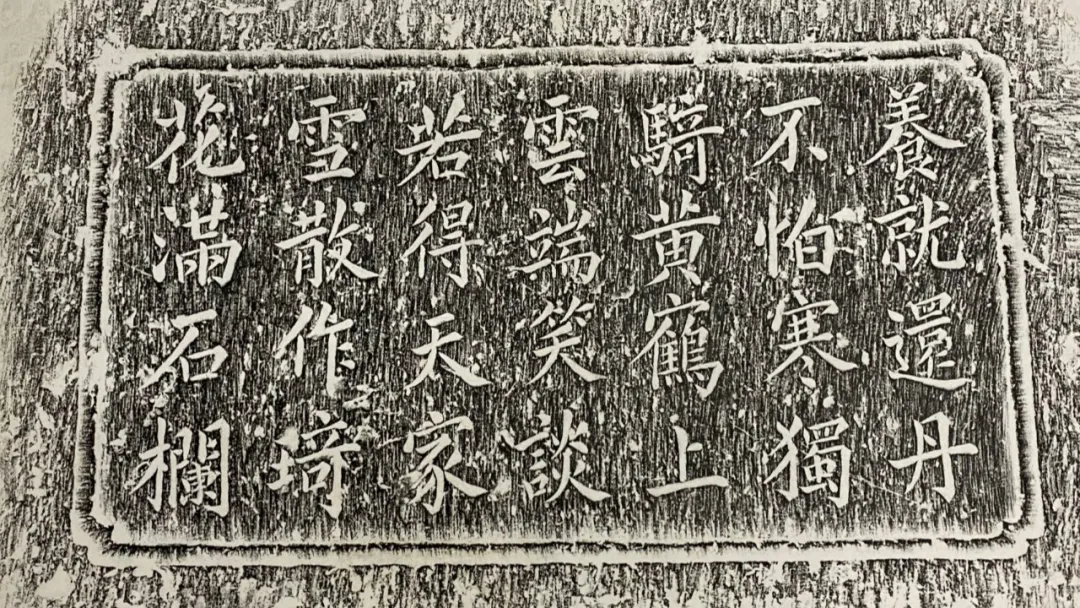 養就還丹
不怕寒獨
騎黄鶴上
雲端笑談
若得天家
雪散作琦
花滿石欄